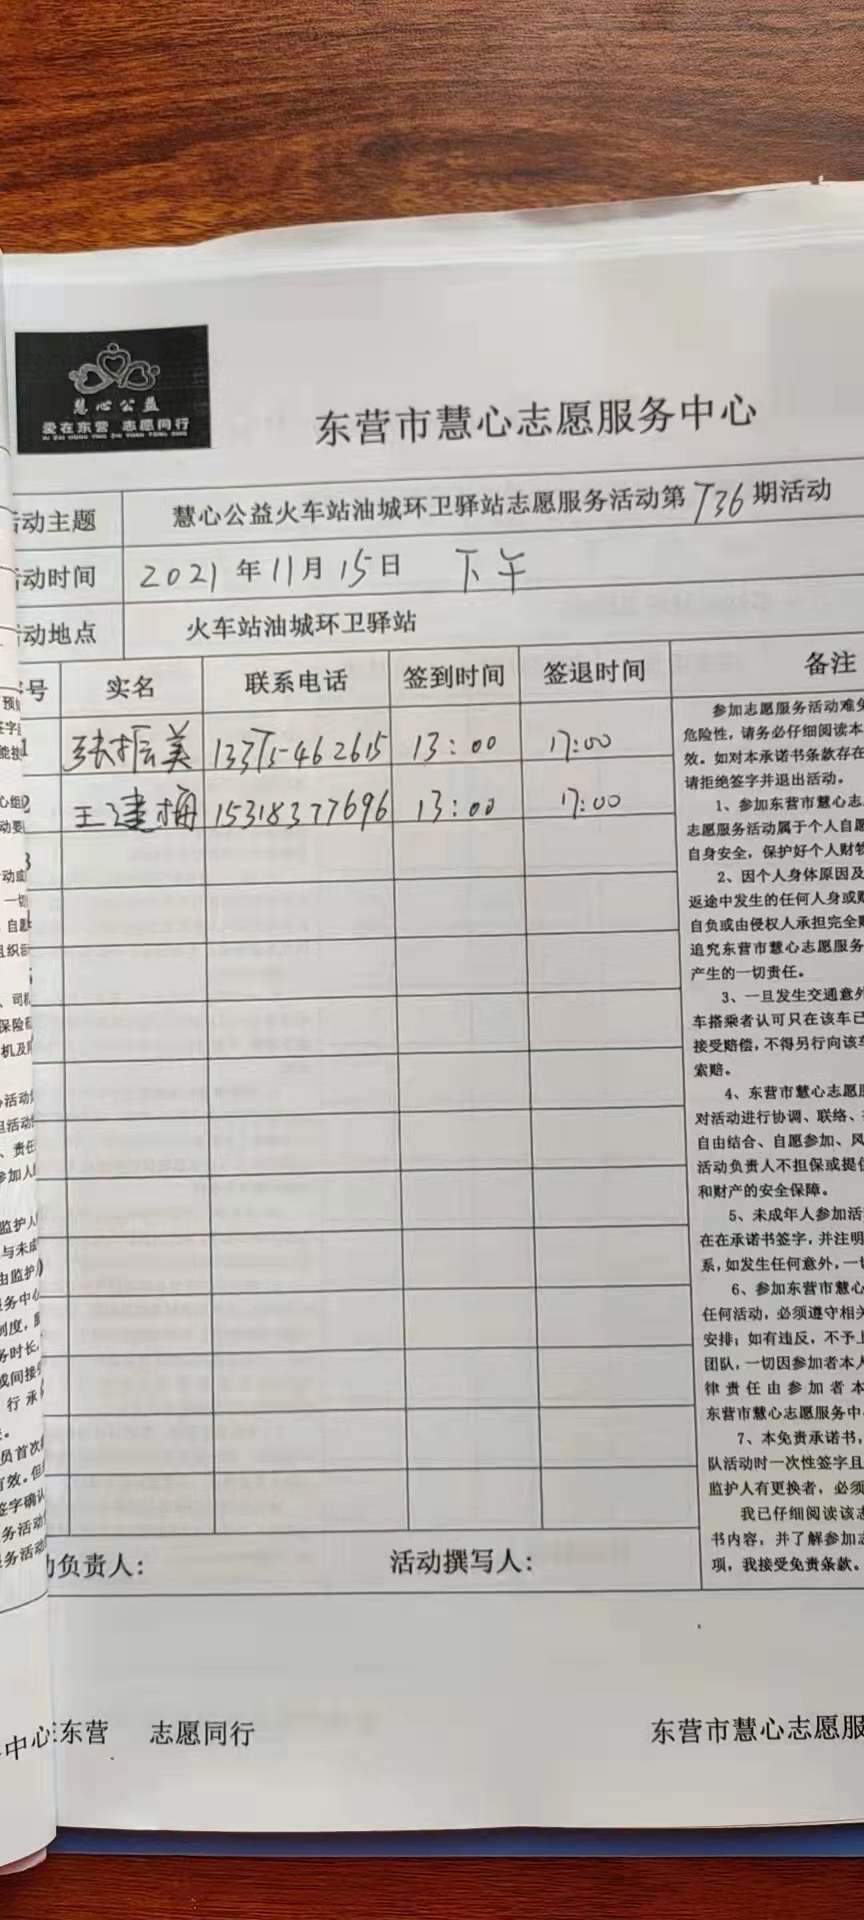 慧心公益
爱在东营 志愿同行
AI ZAI DONG YING ZHI YUAN TONG XING
东营市慧心志愿服务中心
活动主题 慧心公益火车站油城环卫驿站志愿服务活动第736期活动
活动时间 2021年11月15日 下午
活动地点 火车站油城环卫驿站
号 实名 联系电话 签到时间 签退时间 备注
1 张振美 13375462615 13:00 17:00
2 王建梅 15318377696 13:00 17:00
3
参加志愿服务活动难免
危险性，请务必仔细阅读本
效。如对本承诺书条款存在
请拒绝签字并退出活动。
1、参加东营市慧心志
志愿服务活动属于个人自愿
自身安全，保护好个人财物
2、因个人身体原因及
返途中发生的任何人身或财
自负或由侵权人承担完全
追究东营市慧心志愿服务
产生的一切责任。
3、一旦发生交通意外
车搭乘者认可只在该车已
接受赔偿，不得另行向该车
索赔。
4、东营市慧心志愿服
对活动进行协调、联络、
自由结合、自愿参加、风
活动负责人不担保或提供
和财产的安全保障。
5、未成年人参加活
在在承诺书签字，并注明
系，如发生任何意外，一切
6、参加东营市慧心
任何活动，必须遵守相关
安排；如有违反，不予上
团队，一切因参加者本人
律责任由参加者本
东营市慧心志愿服务中
7、本免责承诺书，
队活动时一次性签字且
监护人有更换者，必须
我已仔细阅读该志
书内容，并了解参加志
项，我接受免责条款。
动负责人： 活动撰写人：
中心 东营 志愿同行 东营市慧心志愿服